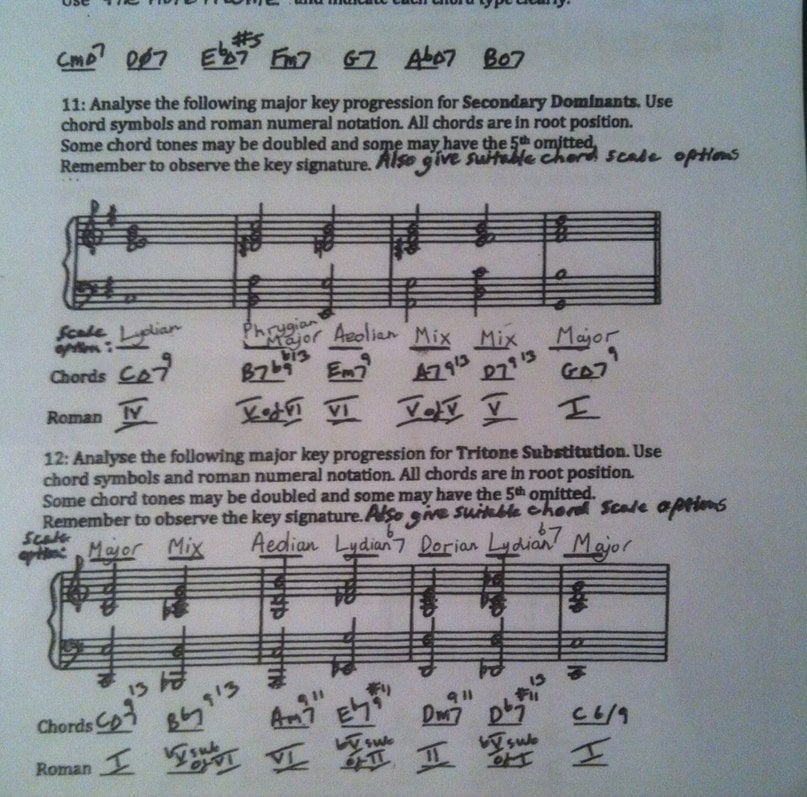 and indicate each chord type clearly.
CmΔ7 DØ7 EbΔ7#5 Fm7 G7 AbΔ7 Bo7
11: Analyse the following major key progression for Secondary Dominants. Use
chord symbols and roman numeral notation. All chords are in root position.
Some chord tones may be doubled and some may have the 5th omitted.
Remember to observe the key signature. Also give suitable chord scale options
Scale option: Lydian Phrygian Major Aeolian Mix Mix Major
Chords CΔ7 9 B7 b9 b13 Em7 9 A7 9 13 D7 9 13 GΔ7 9
Roman IV V of VI VI V of V V I
12: Analyse the following major key progression for Tritone Substitution. Use
chord symbols and roman numeral notation. All chords are in root position.
Some chord tones may be doubled and some may have the 5th omitted.
Remember to observe the key signature. Also give suitable chord scale options
Scale option: Major Mix Aedian Lydian b7 Dorian Lydian b7 Major
Chords CΔ 9 13 Bb7 9 13 Am7 9 11 Eb7 9 #11 Dm7 9 11 Db7 #11 13 C 6/9
Roman I bV sub of VI VI bV sub of II II bV sub of I I